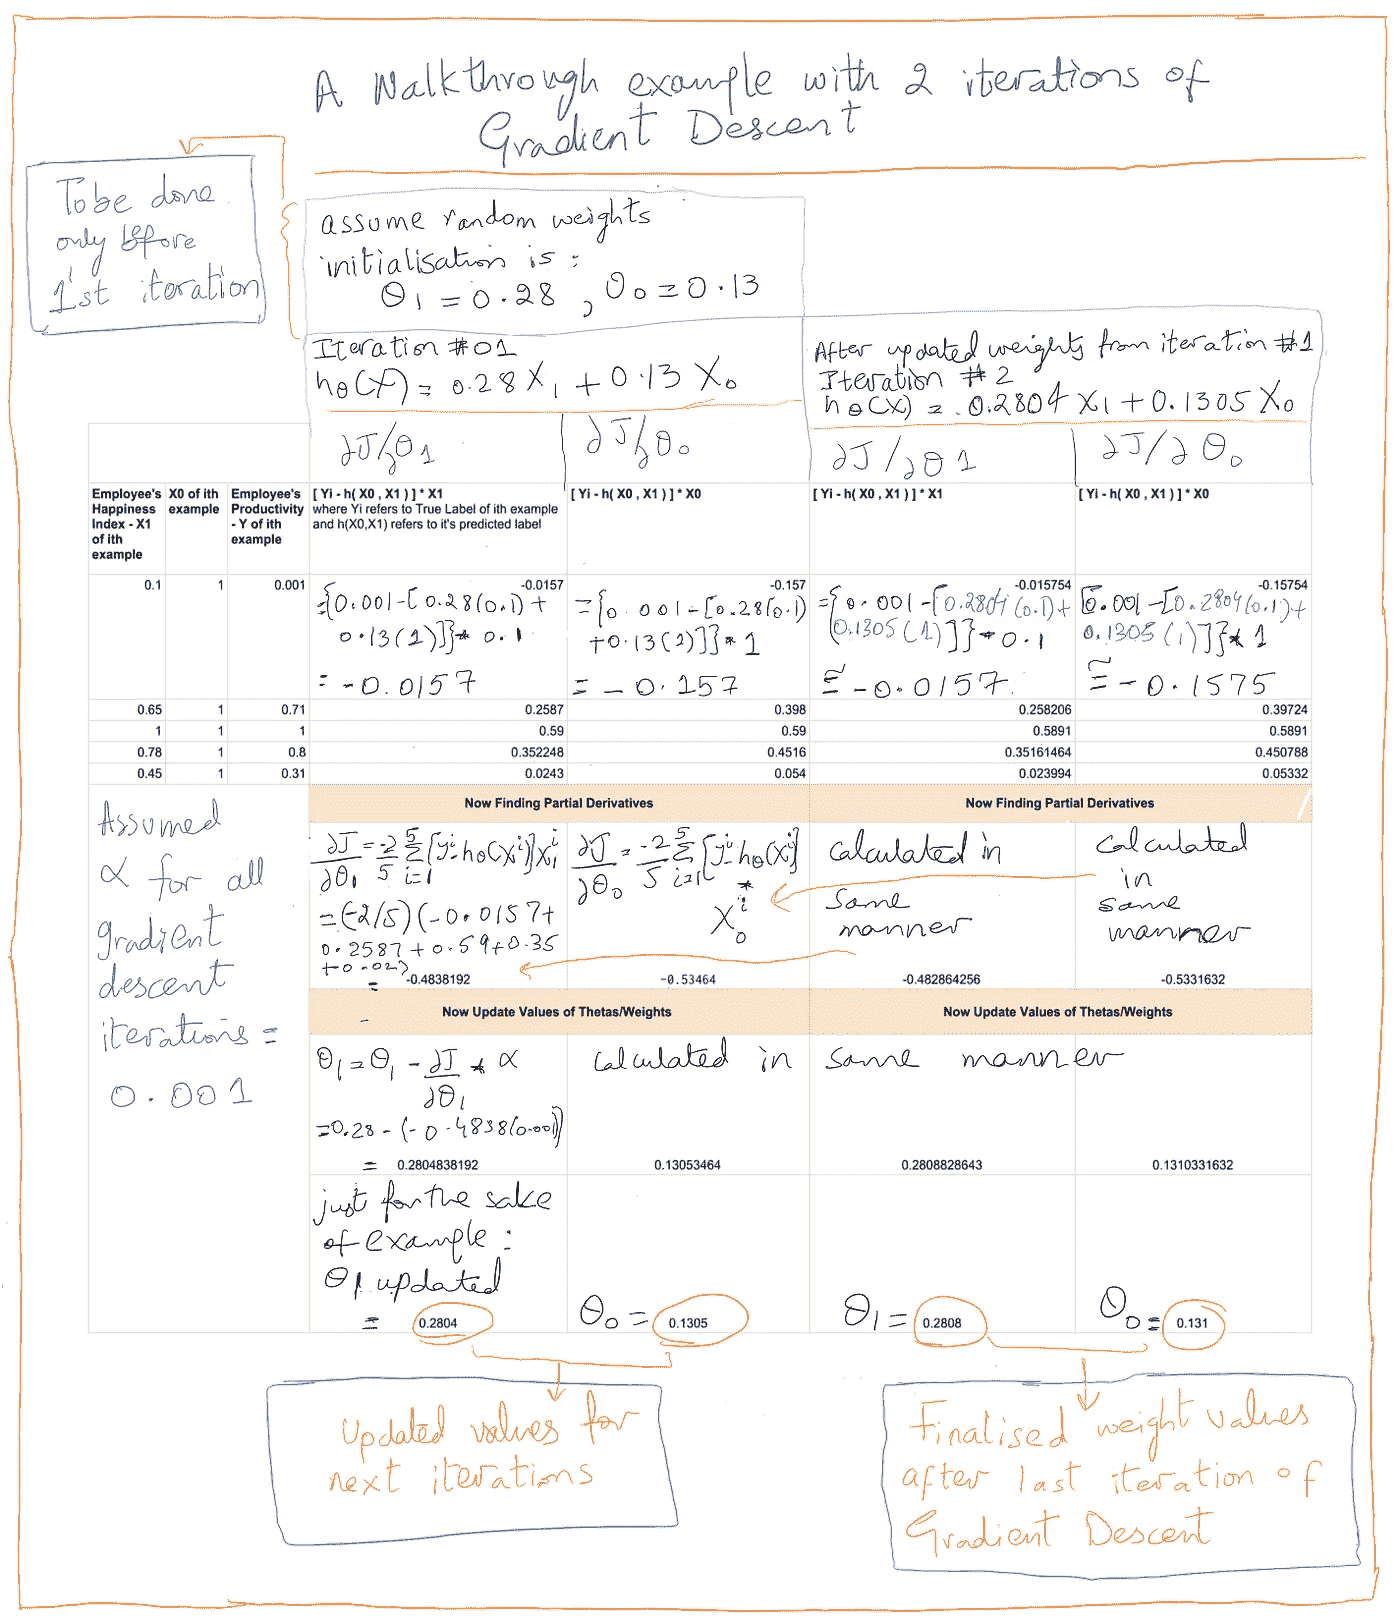 A Walkthrough example with 2 iterations of
Gradient Descent
To be done
only before
1'st iteration
assume random weights
initialisation is :
θ1 = 0.28 , θ0 = 0.13
Iteration #01
hθ(X) = 0.28 X1 + 0.13 X0
After updated weights from iteration #1
Iteration #2
hθ(X) = 0.2804 X1 + 0.1305 X0
∂J/∂θ1
∂J/∂θ0
∂J/∂θ1
∂J/∂θ0
Employee's
Happiness
Index - X1
of ith
example
X0 of ith
example
Employee's
Productivity
- Y of ith
example
[ Yi - h( X0 , X1 ) ] * X1
where Yi refers to True Label of ith example
and h(X0,X1) refers to it's predicted label
[ Yi - h( X0 , X1 ) ] * X0
[ Yi - h( X0 , X1 ) ] * X1
[ Yi - h( X0 , X1 ) ] * X0
0.1 1 0.001 -0.0157 -0.157 -0.015754 -0.15754
={0.001-[0.28(0.1)+
0.13(1)]}* 0.1
= -0.0157
={0.001-[0.28(0.1)
+0.13(1)]}* 1
= -0.157
={0.001-[0.2804(0.1)+
0.1305(1)]}* 0.1
≅ -0.0157
{0.001-[0.2804(0.1)+
0.1305(1)]}* 1
≅ -0.1575
0.65 1 0.71 0.2587 0.398 0.258206 0.39724
1 1 1 0.59 0.59 0.5891 0.5891
0.78 1 0.8 0.352248 0.4516 0.35161464 0.450788
0.45 1 0.31 0.0243 0.054 0.023994 0.05332
Assumed
α for all
gradient
descent
iterations =
0.001
Now Finding Partial Derivatives
Now Finding Partial Derivatives
∂J/∂θ1 = -2/5 5Σi=1 [y^i - hθ(X^i)] X1^i
= (-2/5)(-0.0157+
0.2587+0.59+0.35
+0.02
= -0.4838192
∂J/∂θ0 = -2/5 5Σi=1 [y^i - hθ(X^i)]
* X0^i
-0.53464
Calculated in
same
manner
-0.482864256
Calculated
in
same
manner
-0.5331632
Now Update Values of Thetas/Weights
Now Update Values of Thetas/Weights
θ1 = θ1 - ∂J/∂θ1 * α
=0.28-(-0.4838(0.001))
= 0.2804838192
Calculated in same manner
0.13053464
0.2808828643
0.1310331632
just for the sake
of example :
θ1 updated
= 0.2804
θ0 = 0.1305
θ1 = 0.2808
θ0 = 0.131
Updated values for
next iterations
Finalised weight values
after last iteration of
Gradient Descent